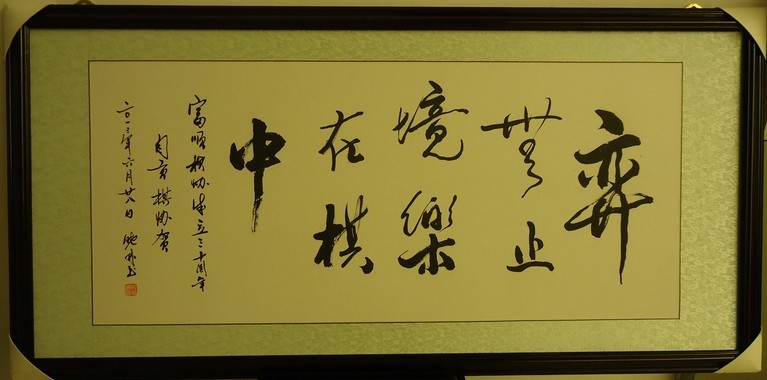 弈
無止
境樂
在棋
中
富顺棋协成立三十周年
自贡棋协贺
二〇一三年六月廿八日 书